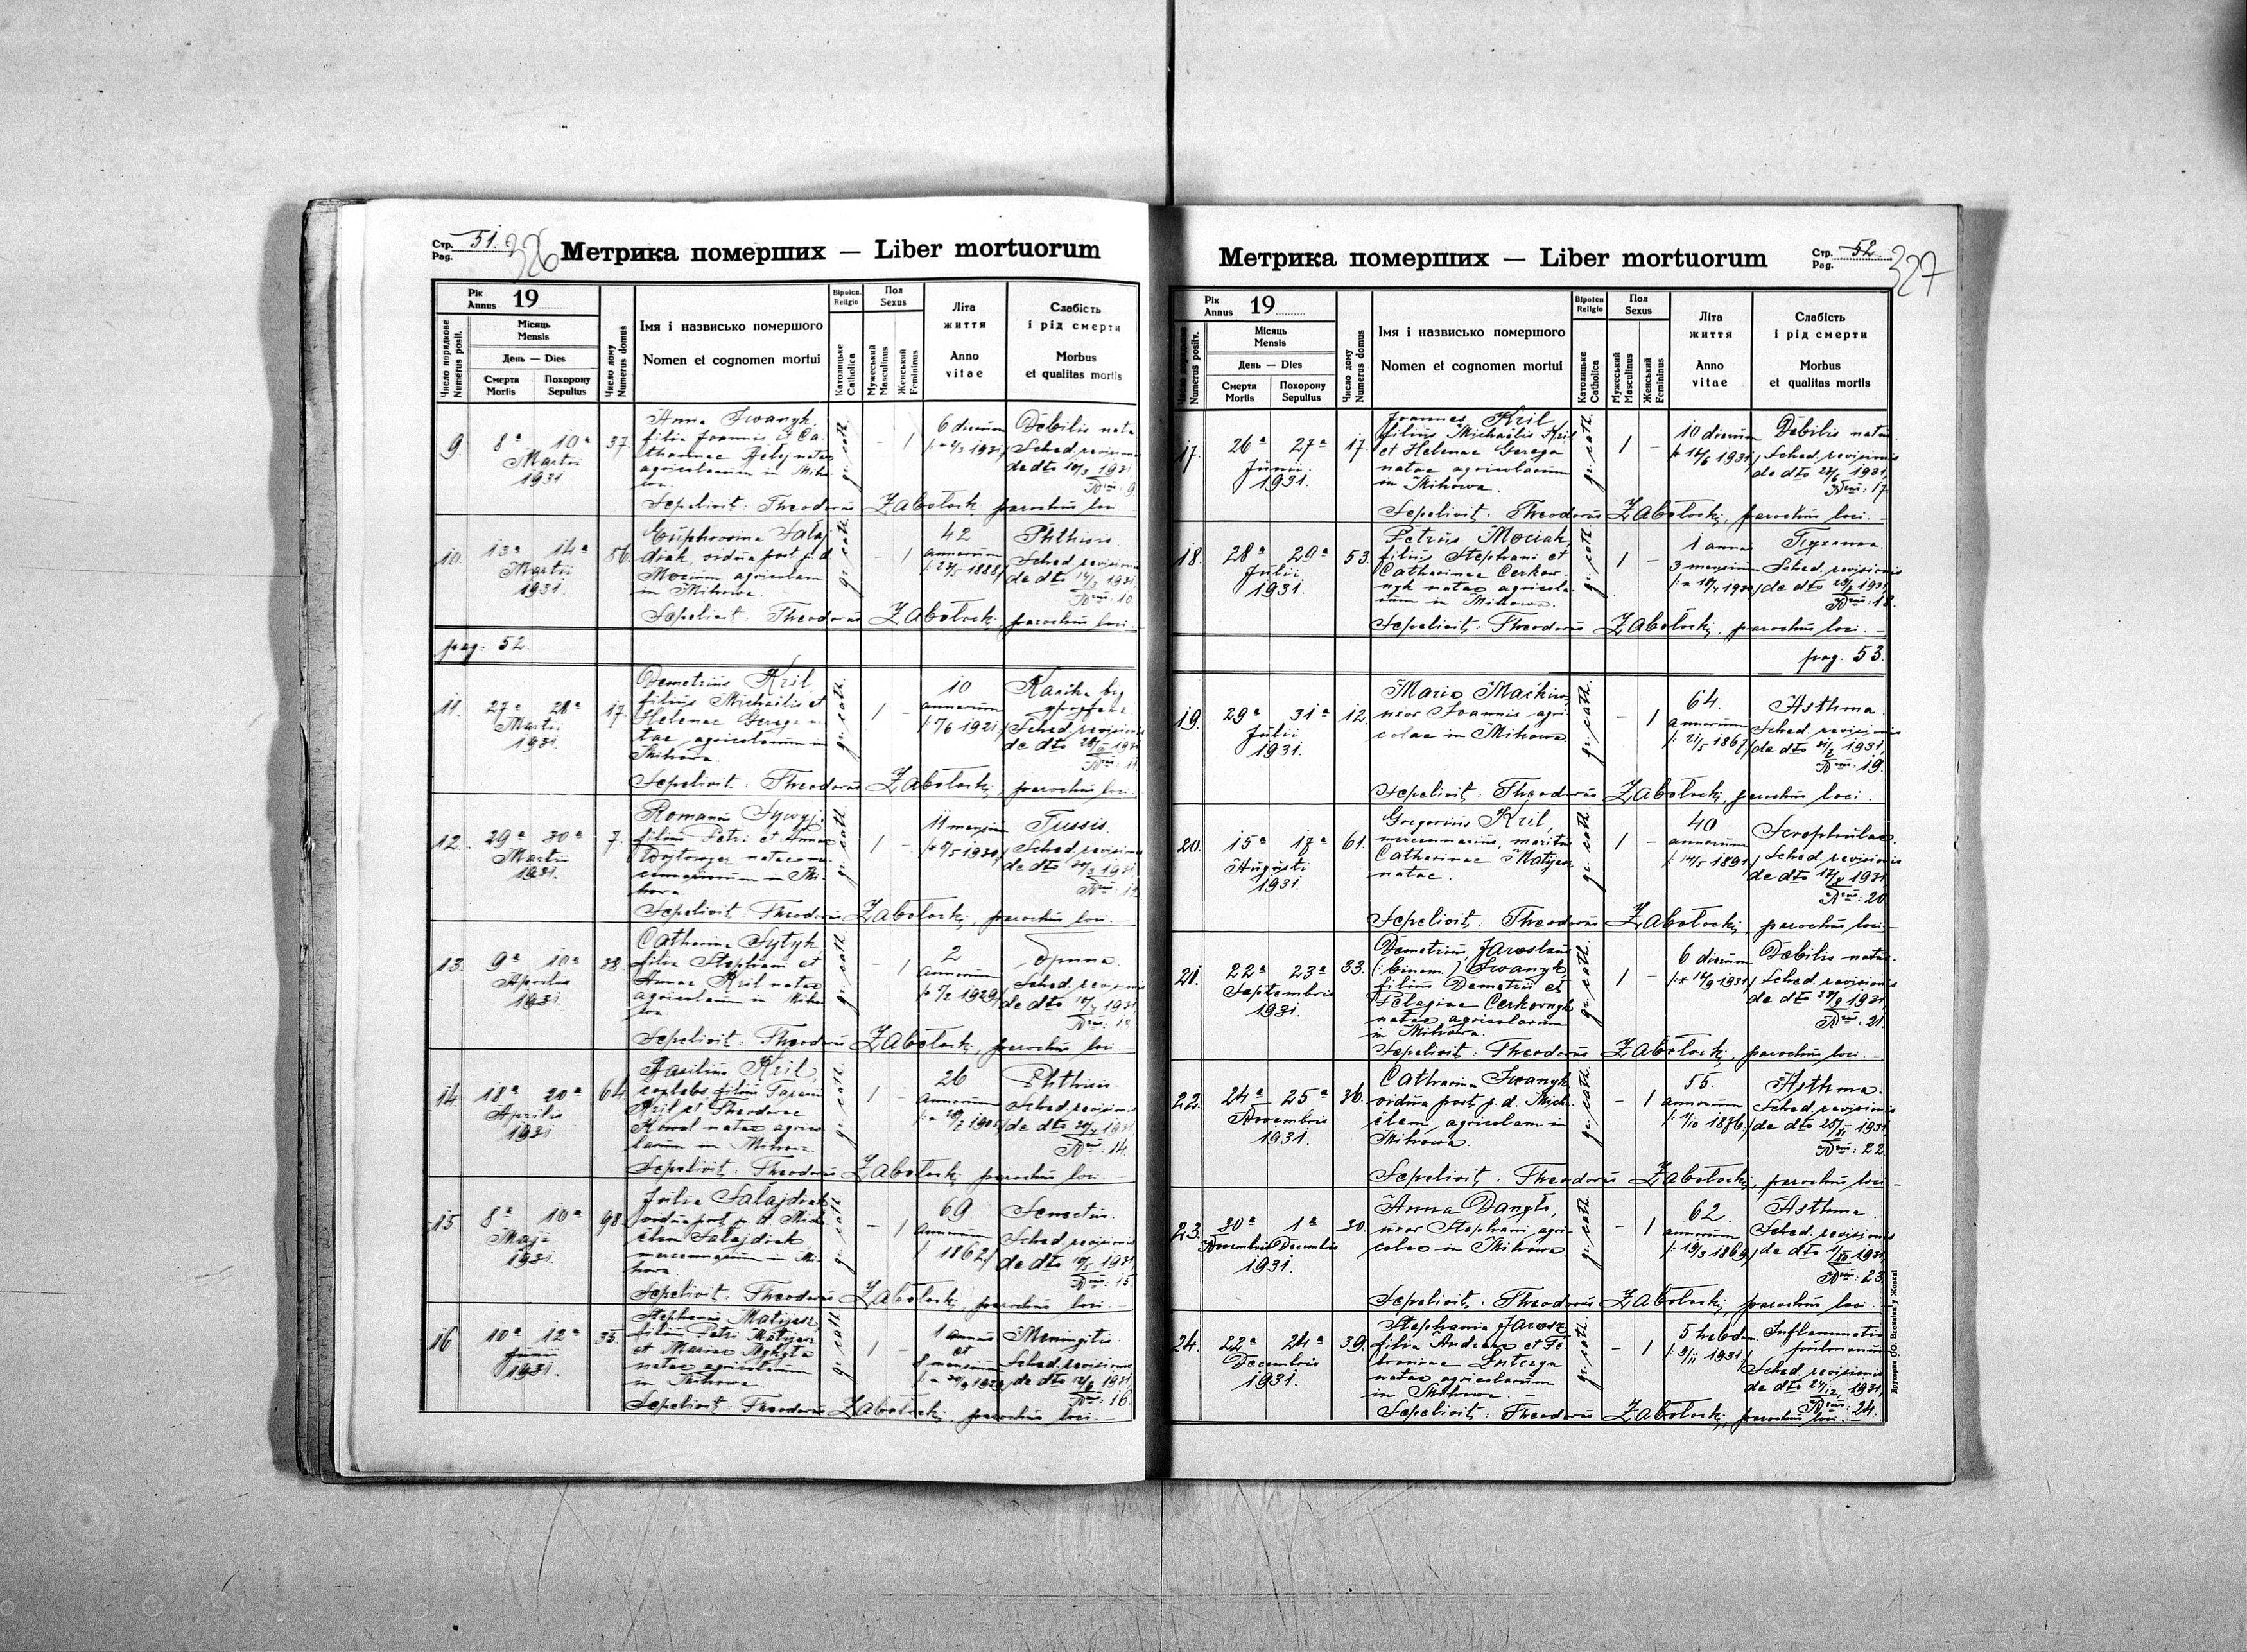 Стр. Pag. 51. 326
Метрика померших — Liber mortuorum
Рік Annus 19
Число порядкове Numerus posit.
Місяць Mensis
День — Dies
Смерти Mortis
Похорону Sepultus
Число дому Numerus domus
Імя і назвисько помершого
Nomen et cognomen mortui
Віроісп. Religio
Католицьке Catholica
Пол Sexus
Мужеський Masculinus
Женський Femininus
Літа життя
Anno vitae
Слабість і рід смерти
Morbus et qualitas mortis
9. 8ª 10ª Martii 1931 37.
Anna Iwanyk,
filia Joannis et Ca-
tharinae natae
agricolarum in Miho-
wa.
gr. cath. - 1
6 dierum
Debilis nata
Sched. revisionis
de dto 10/3 1931
Nrus: 9.
Sepelivit: Theodorus Zabołockj, parochus loci.
10. 13ª 14ª Martii 1931. 56.
Euphrosina Sałaj-
diak, vidua post p. d.
agricolam
in Mihowa.
gr. cath. - 1
42
annorum
Phthisis.
Sched. revisionis
de dto 14/3 1931
Nrus: 10.
Sepelivit: Theodorus Zabołockj, parochus loci.
pag. 52.
11. 27ª 28ª Martii 1931. 17.
Demetrius Kril,
filius Michaëlis et
Helenae Gerega na-
tae, agricolarum in
Mihowa.
gr. cath. 1 -
10
annorum
/: 7/6 1921
Sched. revisionis
de dto 28/3 1931
Nrus: 11.
Sepelivit: Theodorus Zabołockj, parochus loci.
12. 29ª 30ª Martii 1931. 7.
Romanus
filius Petri et Annae
natae mer-
cenariorum in Mi-
howa.
gr. cath. 1 -
11 mensium
Tussis.
Sched. revisionis
de dto 30/3 1931
Nrus: 12.
Sepelivit: Theodorus Zabołockj, parochus loci.
13. 9ª 10ª Aprilis 1931. 38.
Catharina Sytyk,
filia Stephani et
Annae Kril natae
agricolarum in Miho-
wa.
gr. cath. - 1
2
annorum
Sched. revisionis
de dto 10/4 1931
Nrus: 13.
Sepelivit: Theodorus Zabołockj, parochus loci.
14. 18ª 20ª Aprilis 1931. 64.
Basilius Kril,
coelebs, filius
Kril et Theodorae
Kowal natae agrico-
larum in Mihowa.
gr. cath. 1 -
26
annorum
Phthisis
Sched. revisionis
de dto 20/4 1931
Nrus: 14.
Sepelivit: Theodorus Zabołockj, parochus loci.
15. 8ª 10ª Maji 1931. 98.
Julia Sałajdiak
vidua post p. d. Micha-
ëlem Sałajdiak
mercennarium in Mi-
howa.
gr. cath. - 1
69
annorum
/: 1862/
Senectus.
Sched. revisionis
de dto 10/5 1931
Nrus: 15.
Sepelivit: Theodorus Zabołockj, parochus loci.
16. 10ª 12ª Junii 1931. 35.
Stephanus Matijasz,
filius Petri Matijasz
et Mariae Mykyta
natae agricolarum
in Mihowa.
gr. cath. 1 -
1 annus
et
8 mensium
Meningitis.
Sched. revisionis
de dto 12/6 1931
Nrus: 16.
Sepelivit: Theodorus Zabołockj, parochus loci.
Метрика померших — Liber mortuorum
Стр. Pag. 52. 327
Рік Annus 19
Число порядкове Numerus positv.
Місяць Mensis
День — Dies
Смерти Mortis
Похорону Sepultus
Число дому Numerus domus
Імя і назвисько помершого
Nomen et cognomen mortui
Віроісп. Religio
Католицьке Catholica
Пол Sexus
Мужеський Masculinus
Женський Femininus
Літа життя
Anno vitae
Слабість і рід смерти
Morbus et qualitas mortis
17. 26ª 27ª Junii 1931. 17.
Joannes Kril,
filius Michaëlis Kril
et Helenae Gerega
natae agricolarum
in Mihowa.
gr. cath. 1 -
10 dierum
/* 16/6 1931/
Debilis natus.
Sched. revisionis
de dto 27/6 1931,
Nrus: 17.
Sepelivit: Theodorus Zabołockj, parochus loci.
18. 28ª 29ª Julii 1931. 53.
Petrus Mociak,
filius Stephani et
Catharinae Cerkow-
nyk natae agricola-
rum in Mihowa.
gr. cath. 1 -
1 anni
3 mensium
Sched. revisionis
de dto 29/7 1931,
Nrus: 18.
Sepelivit: Theodorus Zabołockj, parochus loci.
pag. 53.
19. 29ª 31ª Julii 1931. 12.
Maria
uxor Joannis agri-
colae in Mihowa.
gr. cath. - 1
64.
annorum
/: 21/5 1867/
Asthma.
Sched. revisionis
de dto 31/7 1931,
Nrus: 19.
Sepelivit: Theodorus Zabołockj, parochus loci.
20. 15ª 17ª Augusti 1931. 61.
Gregorius Kril,
mercennarius, maritus
Catharinae Matijasz
natae.
gr. cath. 1 -
40
annorum
/: 14/5 1891/
Scrophulae.
Sched. revisionis
de dto 17/8 1931,
Nrus: 20.
Sepelivit: Theodorus Zabołockj, parochus loci.
21. 22ª 23ª Septembris 1931. 83.
Demetrius Jaroslaus
(: binom.) Iwanyk,
filius Demetrii et
Pelagiae Cerkownyk
natae agricolarum
in Mihowa.
gr. cath. 1 -
6 dierum
/* 16/9 1931/
Debilis natus.
Sched. revisionis
de dto 23/9 1931,
Nrus: 21.
Sepelivit: Theodorus Zabołockj, parochus loci.
22. 24ª 25ª Novembris 1931. 36.
Catharina Iwanyk
vidua post p. d. Mich-
ëlem agricolam in
Mihowa.
gr. cath. - 1
55.
annorum
/: 1/10 1876/
Asthma.
Sched. revisionis
de dto 25/XI 1931
Nrus: 22.
Sepelivit: Theodorus Zabołockj, parochus loci.
23. 30ª 1ª Novembris Decembris 1931. 30.
Anna Danyło,
uxor Stephani agri-
colae in Mihowa.
gr. cath. - 1
62.
annorum
/: 19/3 1869/
Asthma.
Sched. revisionis
de dto 1/XII 1931,
Nrus: 23.
Sepelivit: Theodorus Zabołockj, parochus loci.
24. 22ª 24ª Decembris 1931. 39.
Stephania Jarosz
filia Andreae et Fe-
broniae
natae agricolarum
in Mihowa.
gr. cath. - 1
5 hebdom.
Inflammatio
pulmonum
Sched. revisionis
de dto 24/12 1931,
Nrus: 24.
Sepelivit: Theodorus Zabołockj, parochus loci.